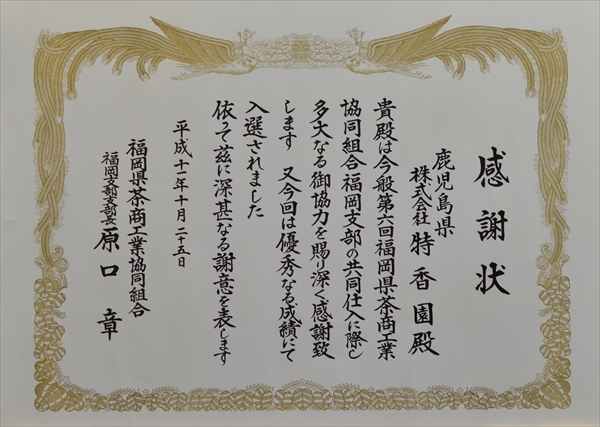 感謝状
鹿児島県
株式会社 特香園殿
貴殿は今般第六回福岡県茶商工業
協同組合福岡支部の共同仕入に際し
多大なる御協力を賜り深く感謝致
します 又今回は優秀なる成績にて
入選されました
依って茲に深甚なる謝意を表します
平成十一年十月二十五日
福岡県茶商工業協同組合
福岡支部支部長 原口章